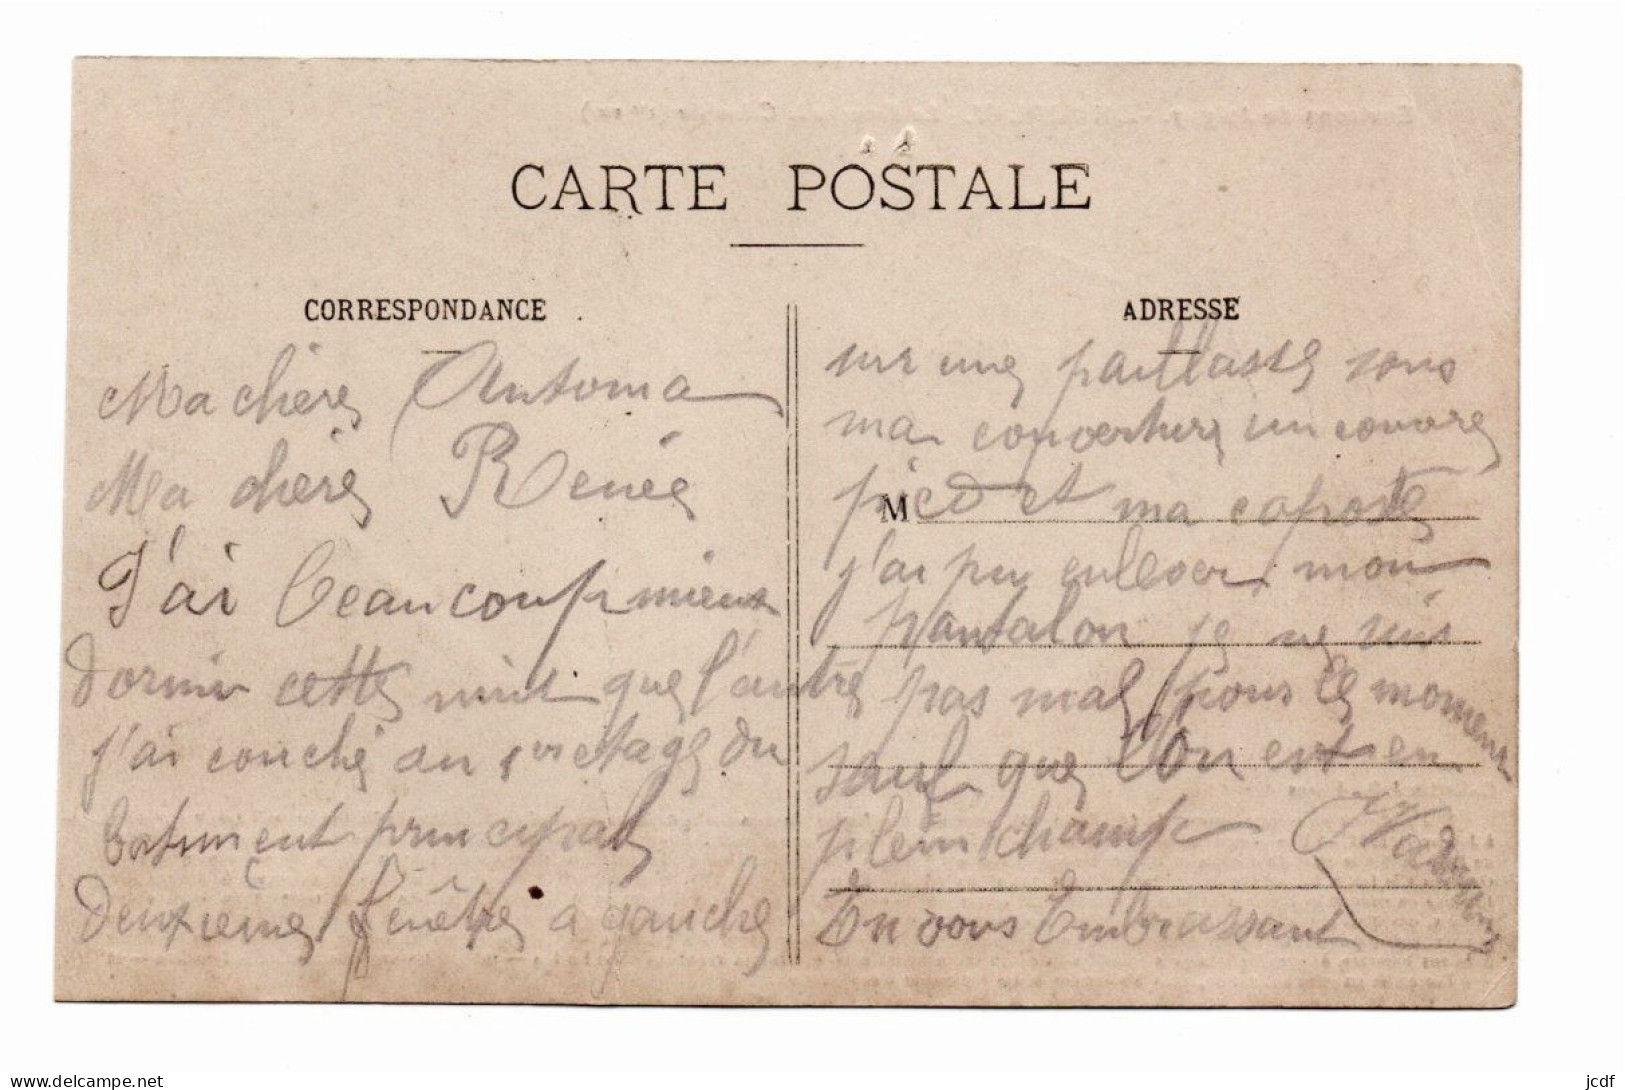 CARTE POSTALE
CORRESPONDANCE
Ma chère Antonia
Ma chère Renée
J'ai beaucoup mieux
dormir cette nuit que l'autre
j'ai couché au 1er etage du
batiment principal
Deuxième fenêtre a gauche
ADRESSE
sur une paillasse sous
ma couverture un couvre
pied et ma capote
M
j'ai pu enlever mon
pantalon je ne suis
pas mal pour le moment
sauf que l'on est en
plein champ
En vous Embrassant
www.delcampe.net
jcdf